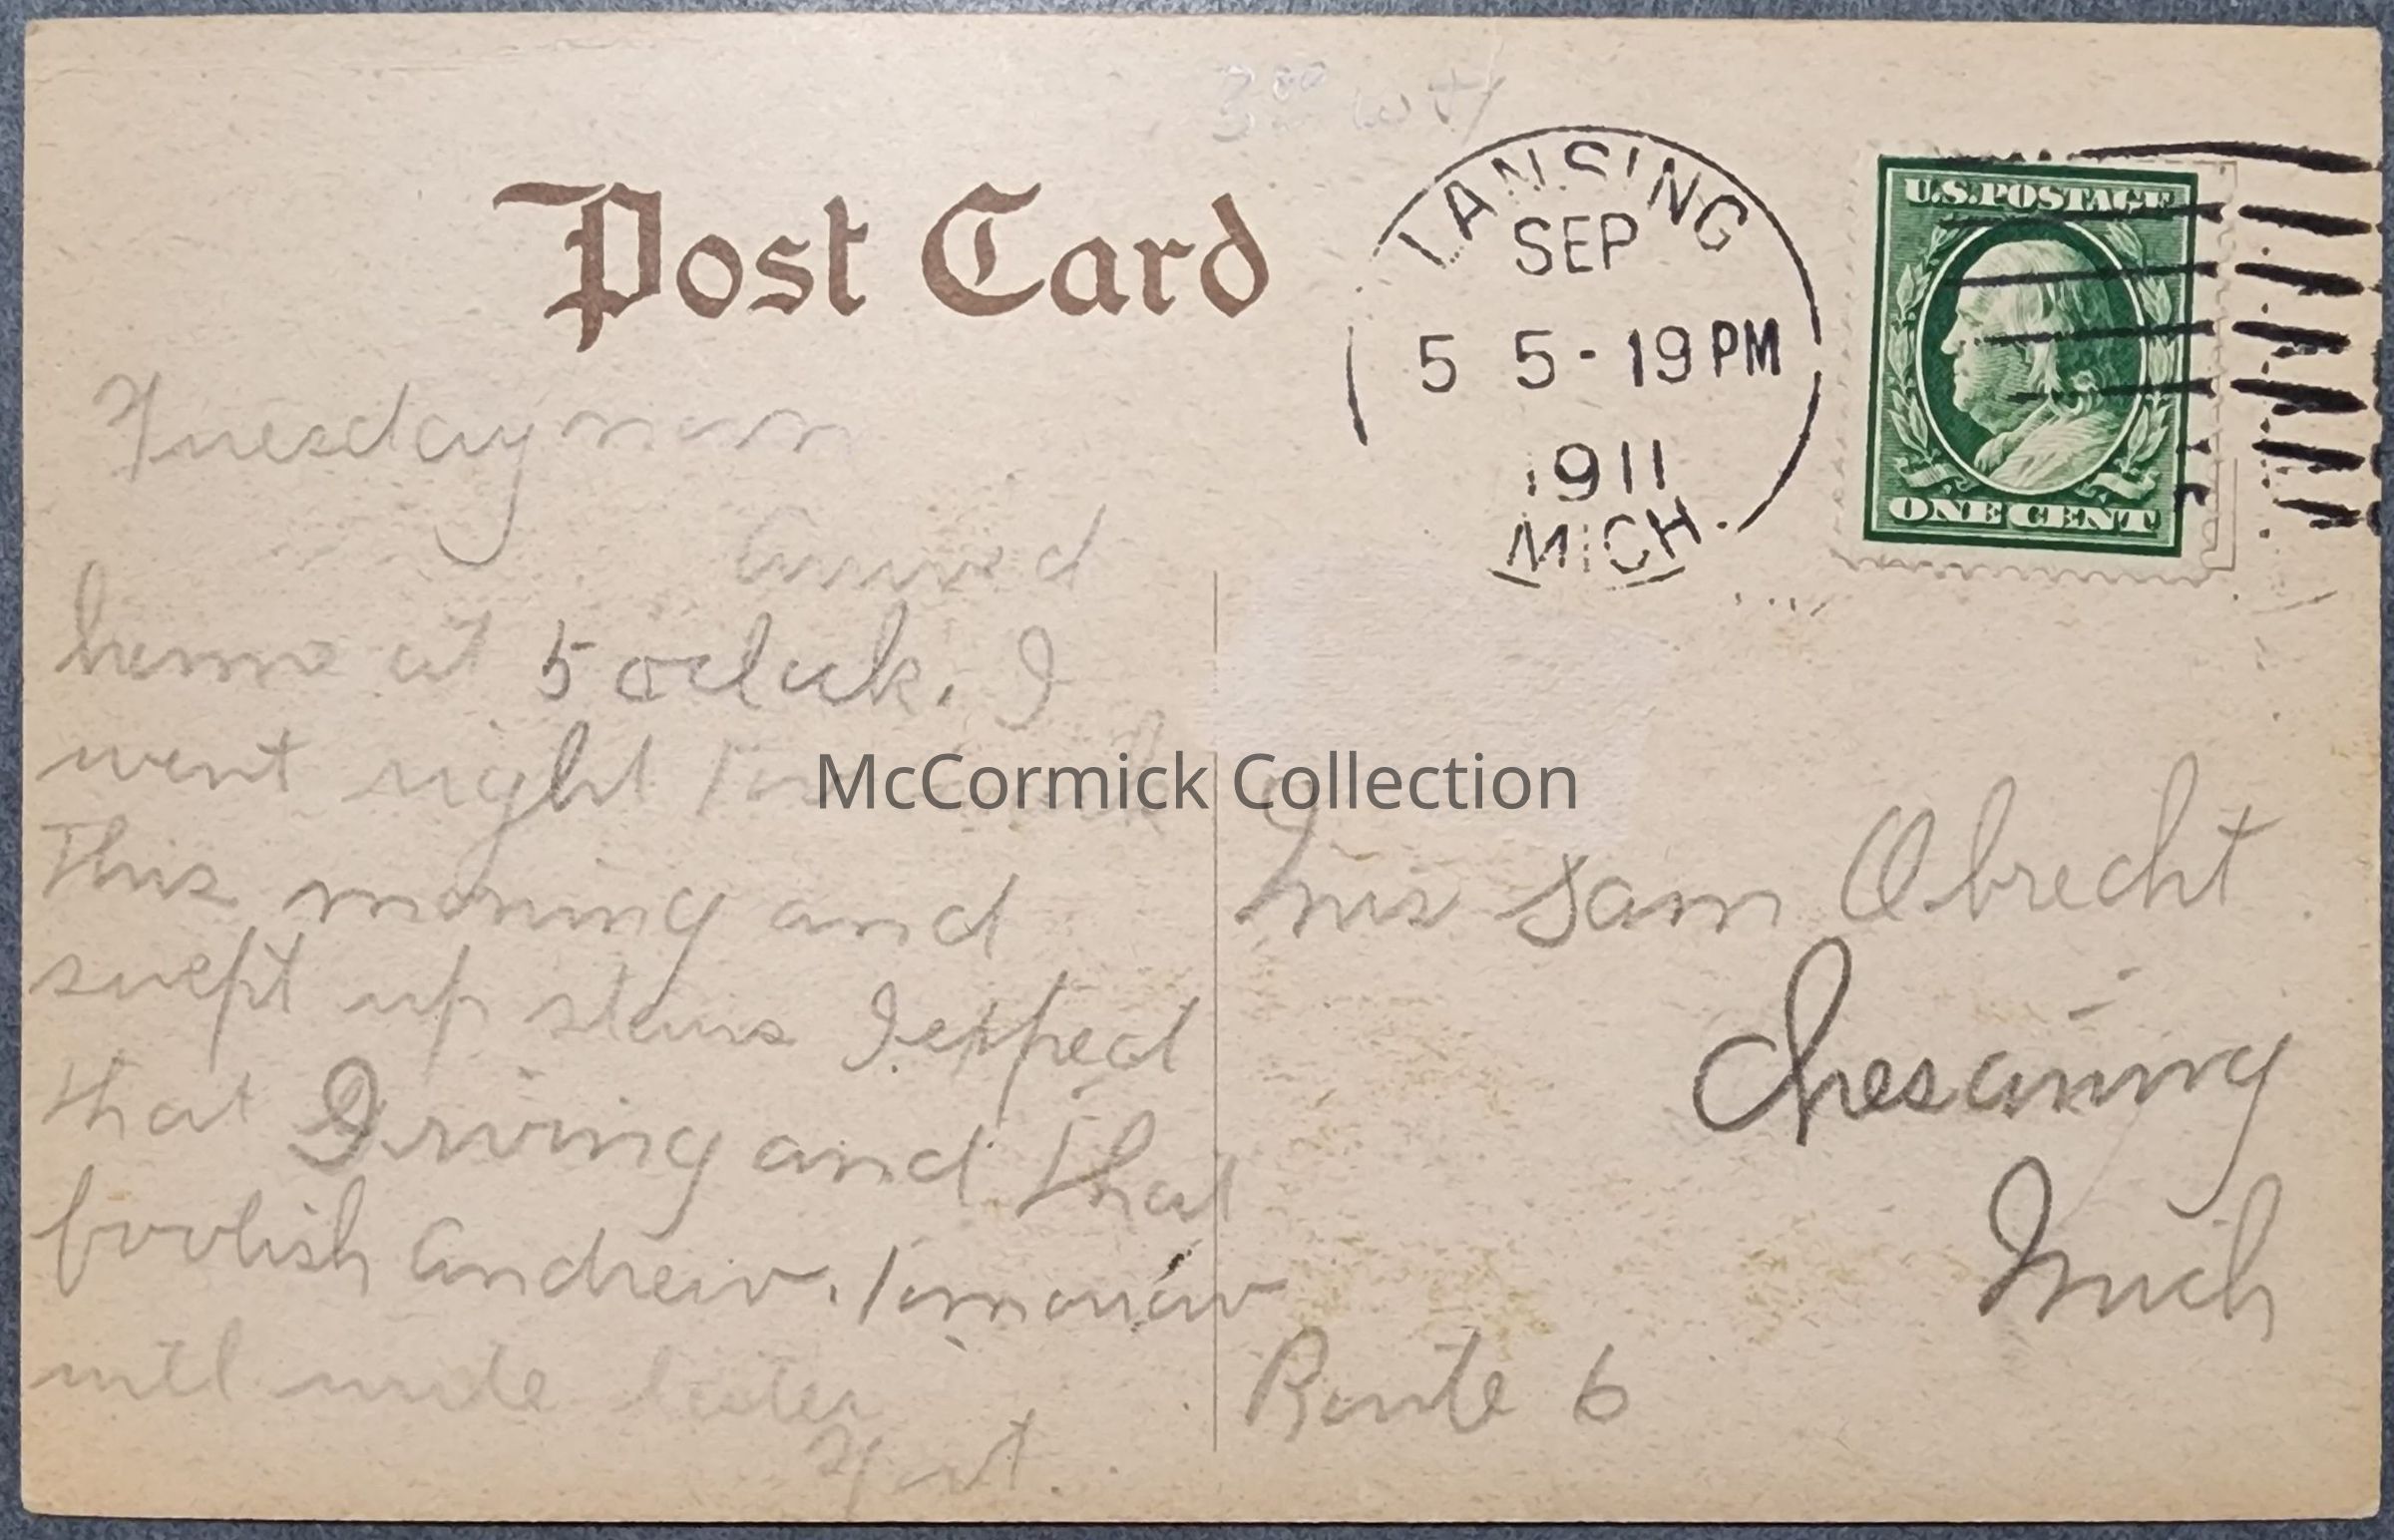 Post Card
LANSING
SEP
5 5-19PM
1911
MICH.
U.S.POSTAGE
ONE CENT
Tuesday noon
Arrived
home at 5 oclock. I
went right to
This morning and
swept up stairs I expect
that Irving and that
foolish Andrew. Tomorrow
will write later
McCormick Collection
Mrs Sam Obrecht
Chesaning
Mich
Route 6